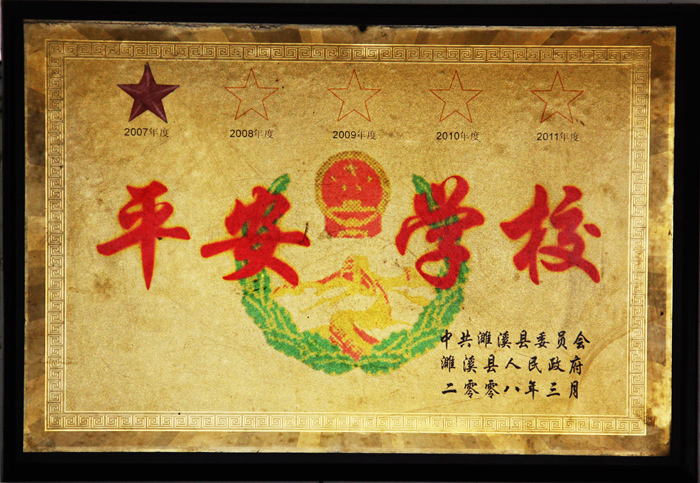 2007年度 2008年度 2009年度 2010年度 2011年度
平安学校
中共濉溪县委员会
濉溪县人民政府
二零零八年三月